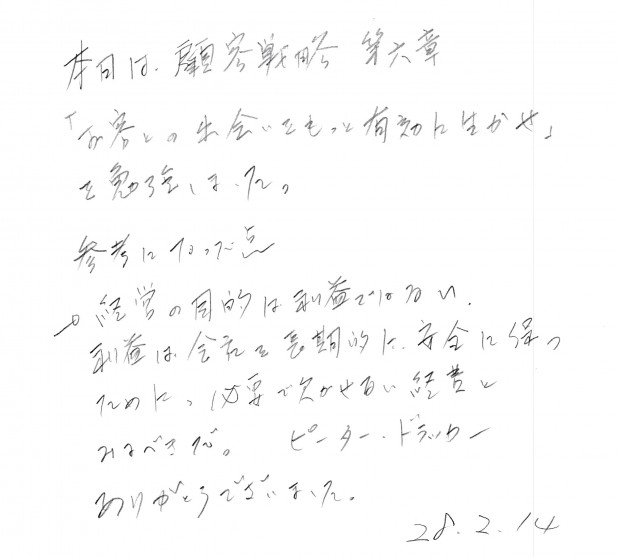 本日は、顧客戦略 第六章
「お客との出会いをもっと有効に生かせ」
を勉強しました。
参考になった点
→ 経営の目的は利益ではない、
利益は会社を長期的に、安全に保つ
ために、必要で欠かせない経費と
みるべきだ。 ピーター・ドラッカー
ありがとうございました。
28.2.14